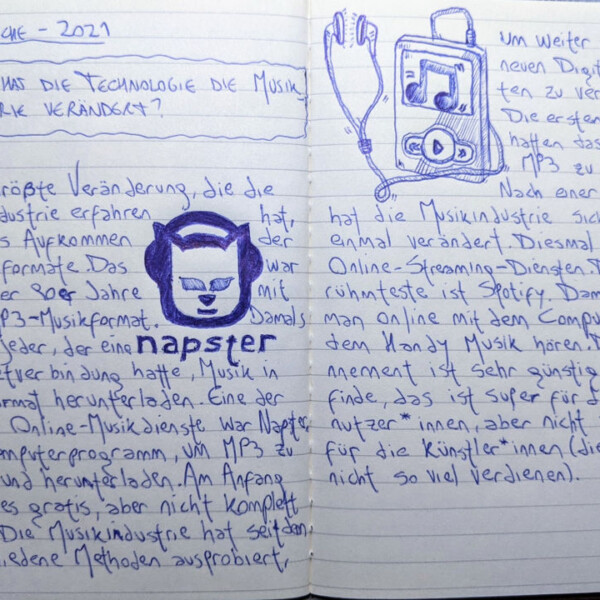 CHE - 2021
HAS DIE TECHNOLOGIE DIE MUSIK-
RIE VERÄNDERT?
rößte Veränderung, die die
dustrie erfahren hat,
s Aufkommen der
formate. Das war
er 80er Jahre mit
P3-Musikformat. Damals
jeder, der eine
napster
etverbindung hatte, Musik in
ormat herunterladen. Eine der
Online-Musikdienste war Napter,
omputerprogramm, um MP3 zu
und herunterladen. Am Anfang
es gratis, aber nicht komplett
Die Musikindustrie hat seitdem
iedene Methoden ausprobiert,
um weiter
neuen Digit
ten zu ver
Die ersten
hatten das
MP3 zu
Nach einer
hat die Musikindustrie sich
einmal verändert. Diesmal
Online-Streaming-Diensten. D
rühmteste ist Spotify. Dam
man online mit dem Compu
dem Handy Musik hören. D
nnement ist sehr günstig
finde, das ist super für d
nutzer*innen, aber nicht
für die Künstler*innen (die
nicht so viel verdienen).